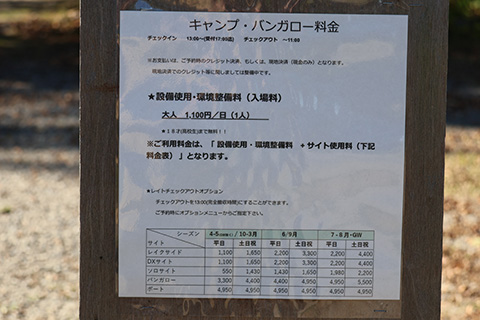 キャンプ・バンガロー料金
チェックイン 13:00～(受付17:00迄) チェックアウト ～11:00
※お支払いは、ご予約時のクレジット決済、もしくは、現地決済（現金のみ）となります。
現地決済でのクレジット等に関しましては整備中です。
★設備使用・環境整備料（入場料）
大人 1,100円／日（1人）
★18才(高校生)まで無料！！
※ご利用料金は、「 設備使用・環境整備料 ＋サイト使用料（下記
料金表）」となります。
★レイトチェックアウトオプション
チェックアウトを13:00(完全撤収時間)にすることができます。
ご予約時にオプションメニューからご指定下さい。
シーズン 4-5 / 10-3月 6/9月 7-8月・GW
サイト 平日 土日祝 平日 土日祝 平日 土日祝
レイクサイド 1,100 1,650 2,200 3,300 2,200 4,400
DXサイト 1,100 1,650 2,200 3,300 2,200 4,400
ソロサイト 550 1,430 1,430 1,650 1,980 2,200
バンガロー 3,300 4,400 4,950 4,950 4,400 5,500
ボート 4,950 4,950 4,950 4,950 4,950 4,950